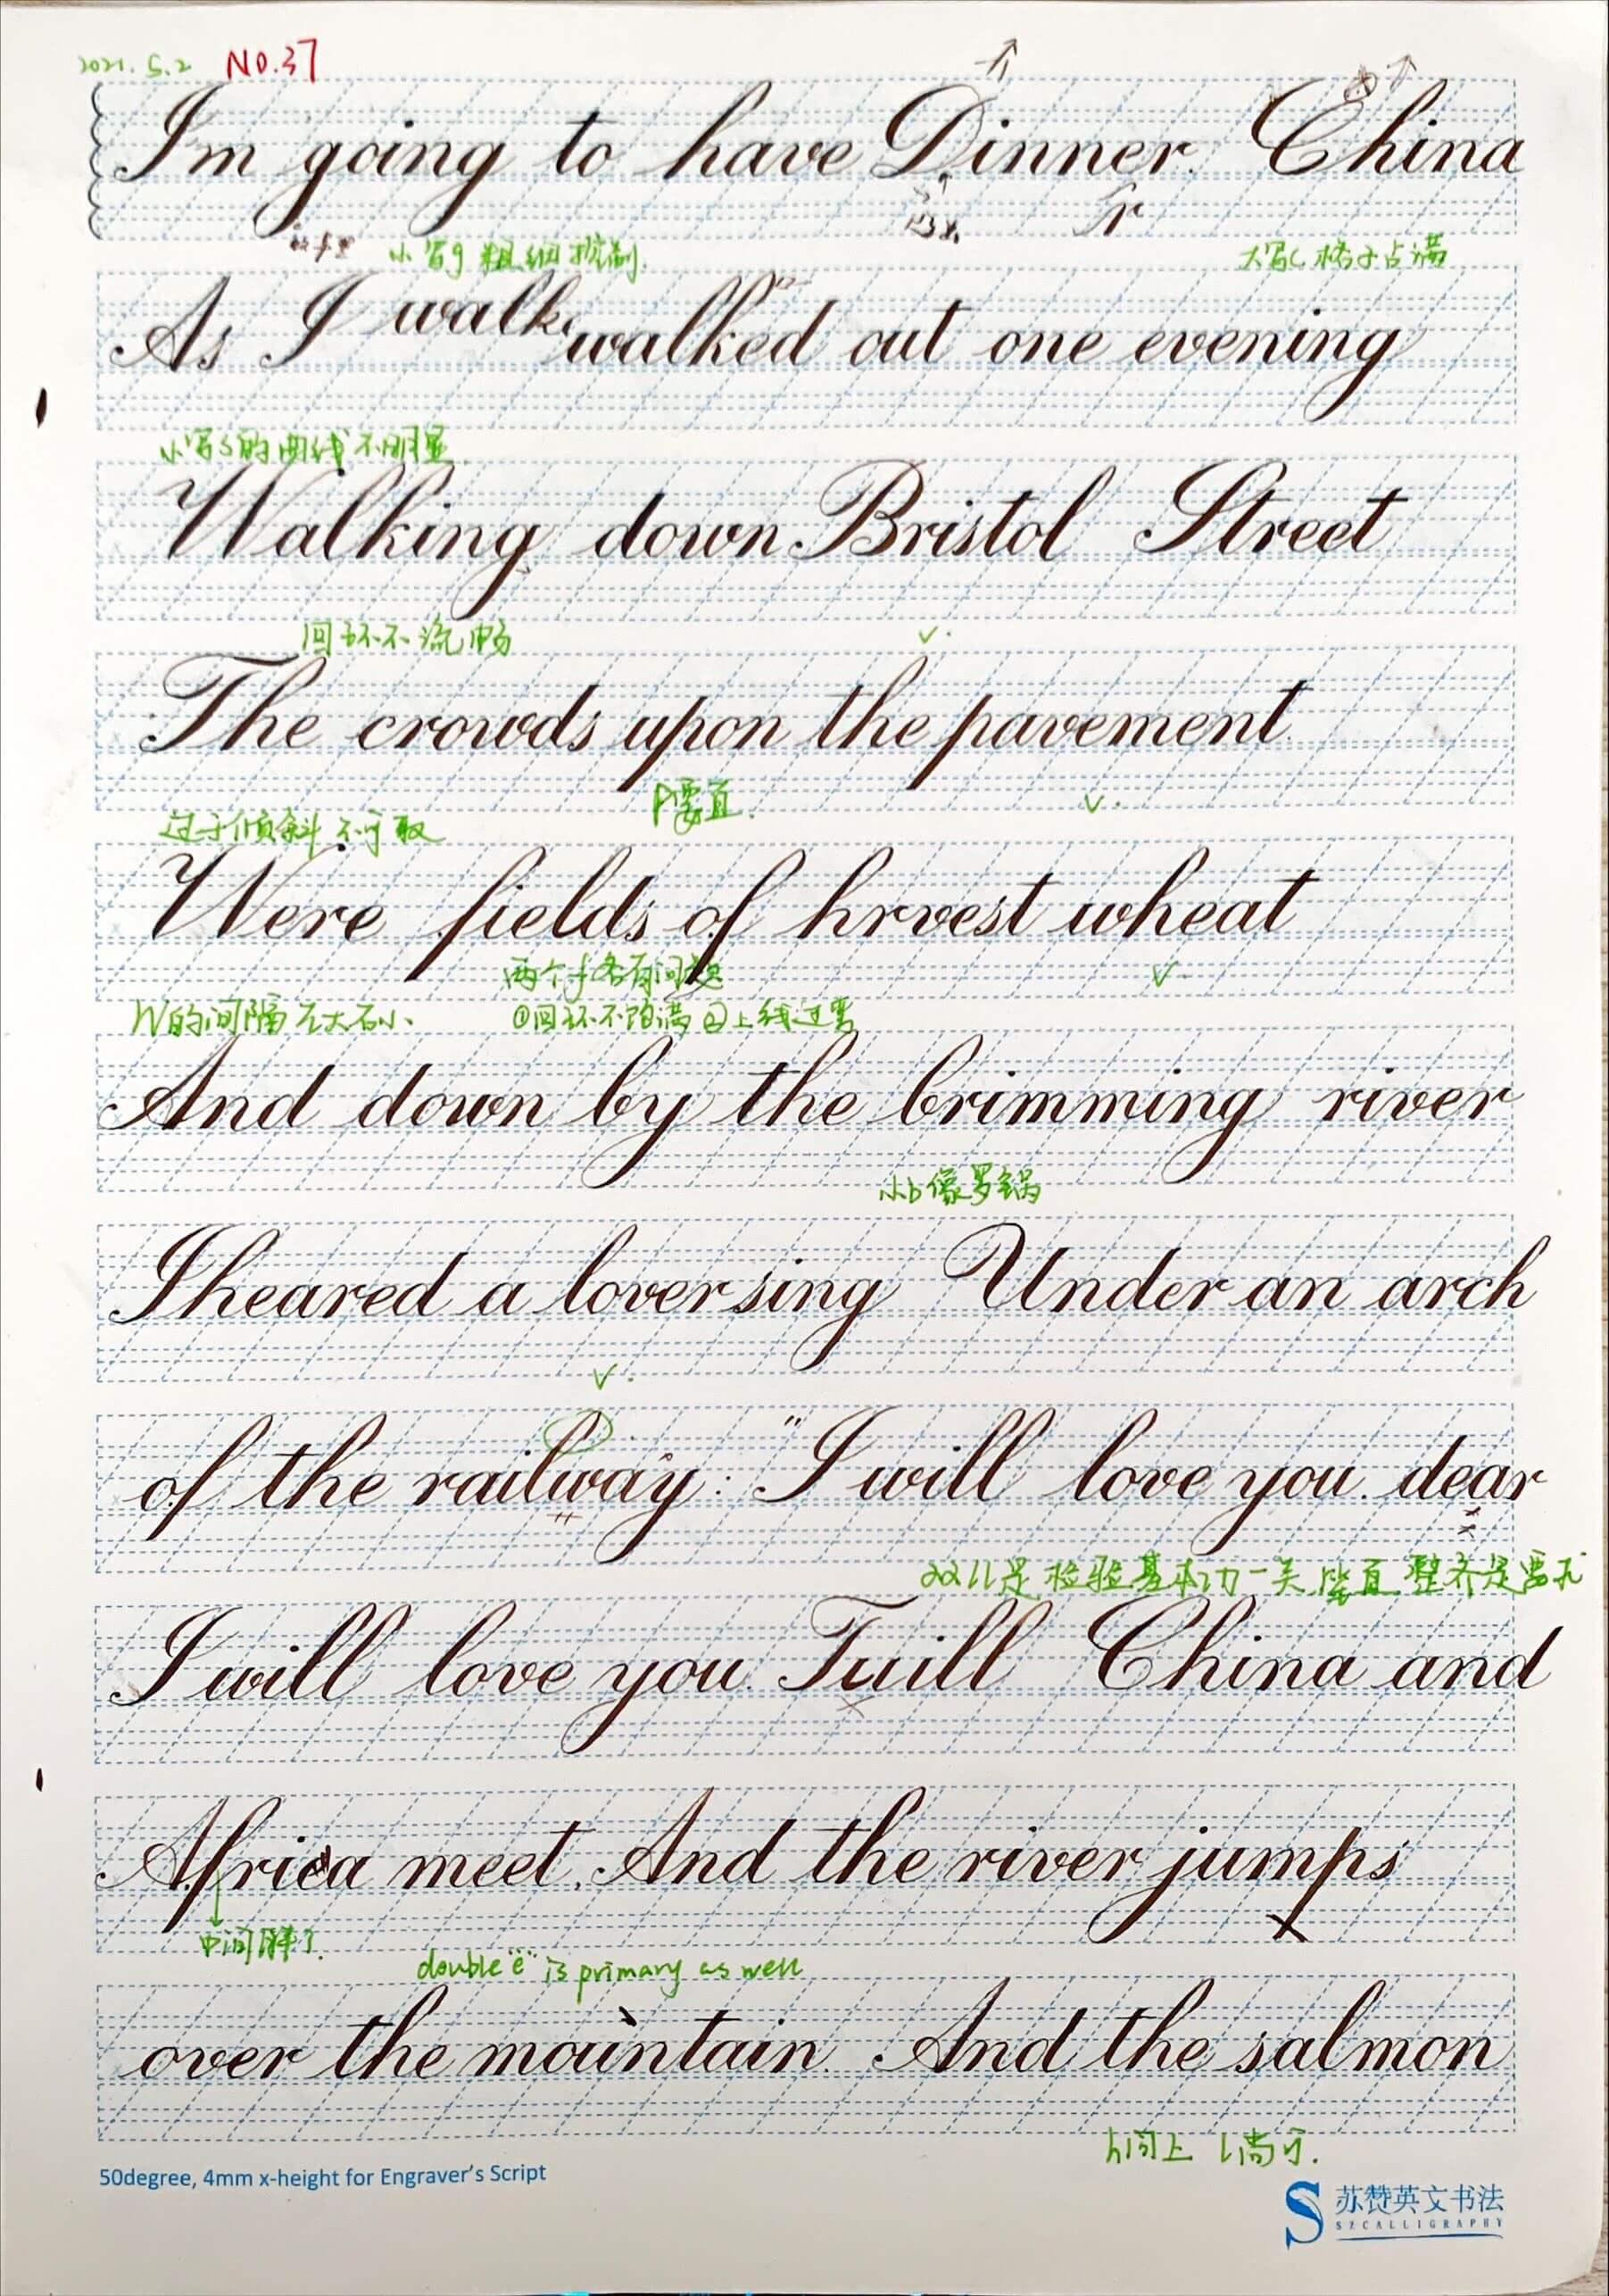 2021.5.2 NO.37
I'm going to have Dinner. China
r
小写g 粗细控制. 大写C 格子占满
As I walk walked out one evening
小写s的曲线不明显
Walking down Bristol Street
回环不流畅
The crowds upon the pavement
P要直.
过于倾斜 不可取
Were fields of hrvest wheat
两个f各有问题
W的间隔 左大右小 ①回环不饱满 ②上线过弯
And down by the brimming river
小b像罗锅
I heared a lover sing Under an arch
of the railway: "I will love you. dear
双ll是检验基本功一关 竖直 整齐是要求
I will love you. Tuill China and
Africa meet. And the river jumps
中间胖了.
double "e" is primary as well
over the mountain. And the salmon
h同上 l尚可.
50degree, 4mm x-height for Engraver's Script
苏赞英文书法
SZCALLIGRAPHY